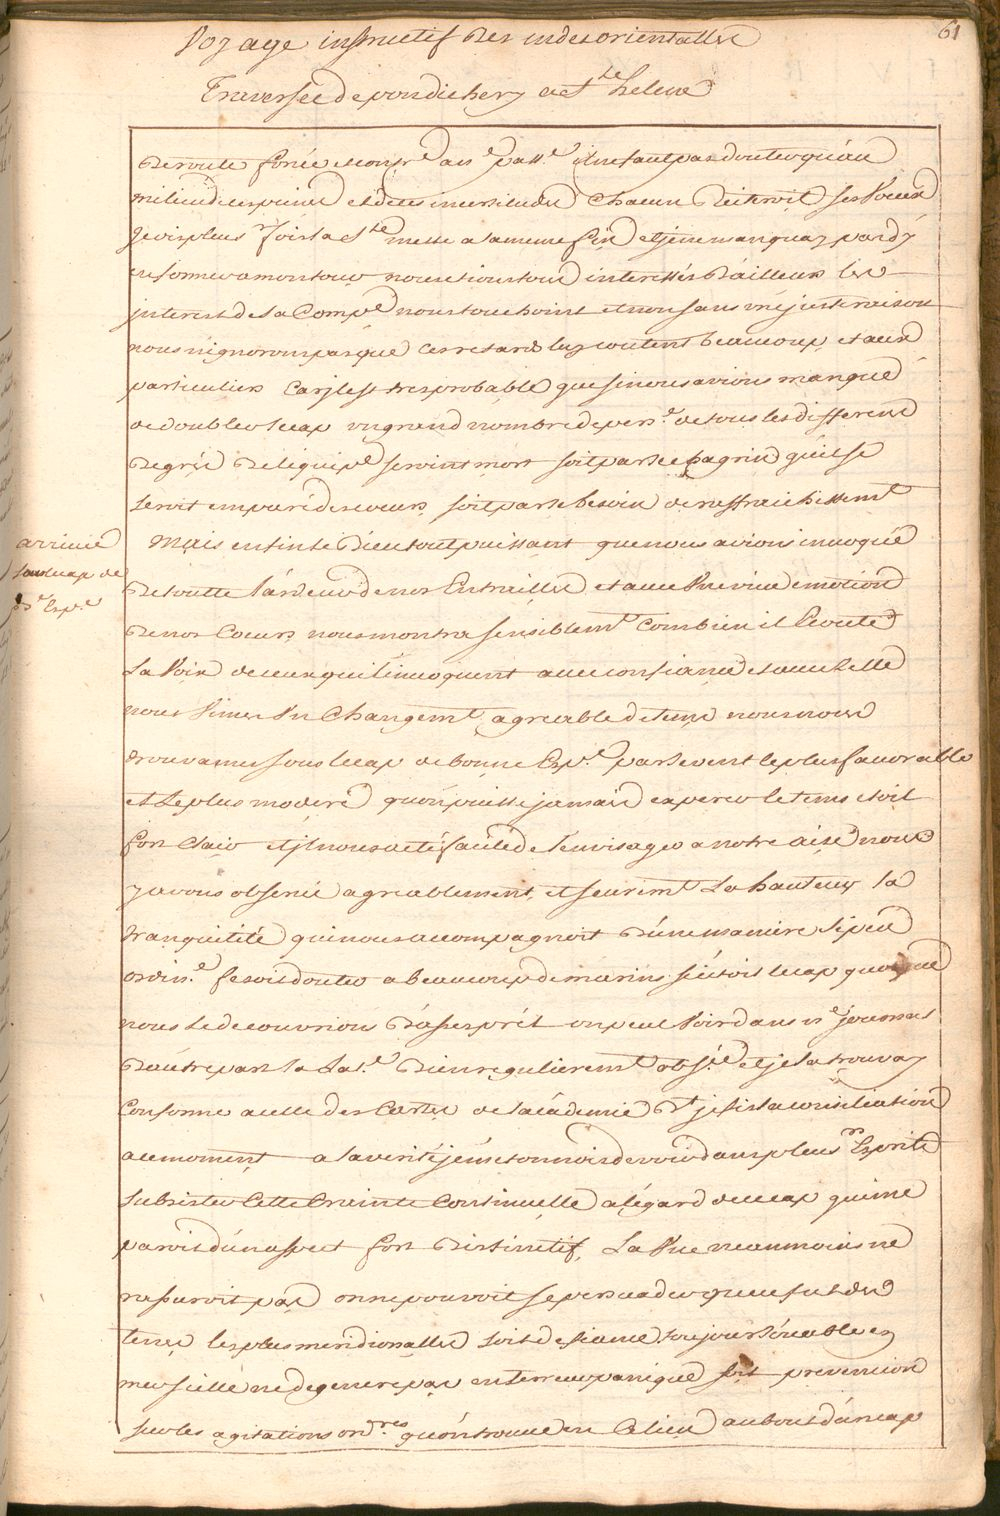 61
Voyage instructif Des indes orientalles
Traversée de pondichery a Ste helene
De route forcée il ne faut pas douter qu'au
milieu des peines et de ces incertitudes chacun Reiteroit ses Voeux
je vis plusrs fois la Ste messe a la meme fin et je ne manquay pas d'y
a mon tour nous etions tous interessés D'ailleurs les
interest de la Compe nous touchoint et non sans une juste raison
nous n'ignorons pas que ces retards luy coutent beaucoup, et aux
particuliers car il est tres probable que si nous avions manqué
de doubler le cap un grand nombre de pers.e de tous les differens
Degrés De l'equipe seroint mort soit par le chagrin qui se
seroit emparé des coeurs, soit par le besoin de raffraichissemt
Mais enfin le Dieu tout puissant que nous avions invoqué
arrivée
sous le cap de
Be Espe
De toutte l'ardeur de nos Entrailles et avec Vive emotion
De nos Coeurs nous montra sensiblemt combien il Ecoute
La Voix de ceux qui l'invoquent avec confiance et avec Zelle
nous Vimes Un Changemt agreable de tems nous nous
trouvames sous le cap de bonne Espe par le vent le plus favorable
et Le plus moderé qu'on puisse jamais le tems etoit
fort Clair et il nous a eté facile de l'envisager a notre aise nous
y avons observé agreablement, et seuremt La hauteur la
tranquilité qui nous accompagnoit D'une maniere si peu
ordin.e fesoit douter a beaucoup de marins si c'etoit le cap quoique
nous le decouvrions D'assés prét on peut Voir dans ne journal
D'autre part la Lat.e Bien regulieremt obs.ée et je la trouvay
Conforme a celle des Cartes de l'académie Dt je fis la
a ce moment a la verité je m'etonnois de voir dans plusrs Esprits
subsister Cette Crainte Continuelle a l'égard de ce cap qui me
parois d'un aspect fort Distinctif, La Vue neanmoins ne
rassuroit pas on ne pouvoit se persuader que ce fut des
terres les plus meridionalles soit de siecle en
siecle ne degenere pas en terreur panique soit prevention
sur les agitations ordres qu'on trouve en Ce lieu au bout d'un cap